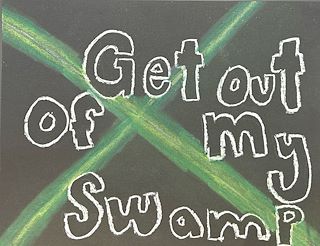 Get out
of my
Swamp